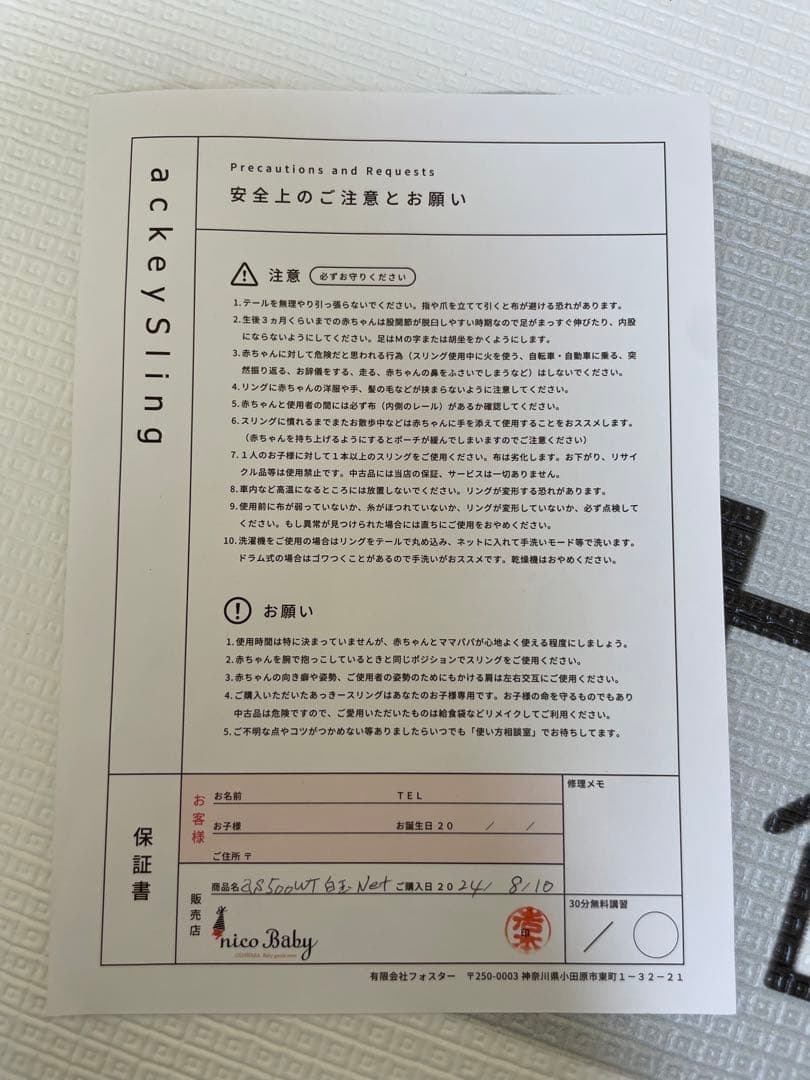 ackeySling
Precautions and Requests
安全上のご注意とお願い
注意 必ずお守りください
1.テールを無理やり引っ張らないでください。指や爪を立てて引くと布が避ける恐れがあります。
2.生後3ヵ月くらいまでの赤ちゃんは股関節が脱臼しやすい時期なので足がまっすぐ伸びたり、内股
にならないようにしてください。足はMの字または胡坐をかくようにします。
3.赤ちゃんに対して危険だと思われる行為（スリング使用中に火を使う、自転車・自動車に乗る、突
然振り返る、お辞儀をする、走る、赤ちゃんの鼻をふさいでしまうなど）はしないでください。
4.リングに赤ちゃんの洋服や手、髪の毛などが挟まらないように注意してください。
5.赤ちゃんと使用者の間には必ず布（内側のレール）があるか確認してください。
6.スリングに慣れるまでまたお散歩中などは赤ちゃんに手を添えて使用することをおススメします。
（赤ちゃんを持ち上げるようにするとポーチが緩んでしまいますのでご注意ください）
7.1人のお子様に対して1本以上のスリングをご使用ください。布は劣化します。お下がり、リサイ
クル品等は使用禁止です。中古品には当店の保証、サービスは一切ありません。
8.車内など高温になるところには放置しないでください。リングが変形する恐れがあります。
9.使用前に布が弱っていないか、糸がほつれていないか、リングが変形していないか、必ず点検して
ください。もし異常が見つけられた場合には直ちにご使用をおやめください。
10.洗濯機をご使用の場合はリングをテールで丸め込み、ネットに入れて手洗いモード等で洗います。
ドラム式の場合はゴワつくことがあるので手洗いがおススメです。乾燥機はおやめください。
お願い
1.使用時間は特に決まっていませんが、赤ちゃんとママパパが心地よく使える程度にしましょう。
2.赤ちゃんを腕で抱っこしているときと同じポジションでスリングをご使用ください。
3.赤ちゃんの向き癖や姿勢、ご使用者の姿勢のためにもかける肩は左右交互にご使用ください。
4.ご購入いただいたあっきースリングはあなたのお子様専用です。お子様の命を守るものでもあり
中古品は危険ですので、ご愛用いただいたものは給食袋などリメイクしてご利用ください。
5.ご不明な点やコツがつかめない等ありましたらいつでも「使い方相談室」でお待ちしてます。
保証書
お客様
お名前 TEL
お子様 お誕生日 20 / /
ご住所 〒
修理メモ
販売店
商品名 as500WT 白玉 Net ご購入日 2024/ 8/10
nico Baby
印
30分無料講習
有限会社フォスター 〒250-0003 神奈川県小田原市東町1-32-21